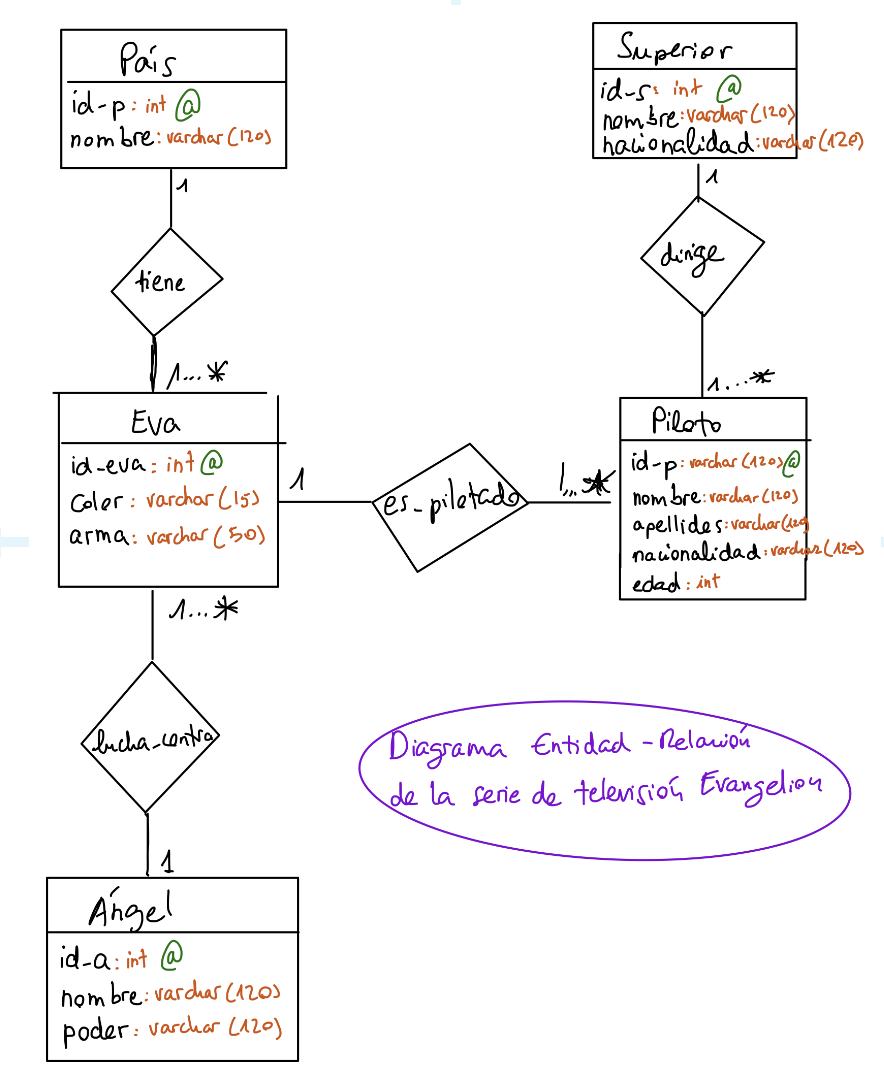 País
id-p: int @
nombre: varchar(120)
1
tiene
1...*
Superior
id-s: int @
nombre: varchar(120)
nacionalidad: varchar(120)
1
dirige
1...*
Eva
id-eva: int @
Color: varchar(15)
arma: varchar(50)
1
es-pilotado
1...*
Piloto
id-p: varchar(120) @
nombre: varchar(120)
apellidos: varchar(120)
nacionalidad: varchar(120)
edad: int
1...*
lucha-contra
1
Ángel
id-a: int @
nombre: varchar(120)
poder: varchar(120)
Diagrama Entidad-Relación
de la serie de televisión Evangelion